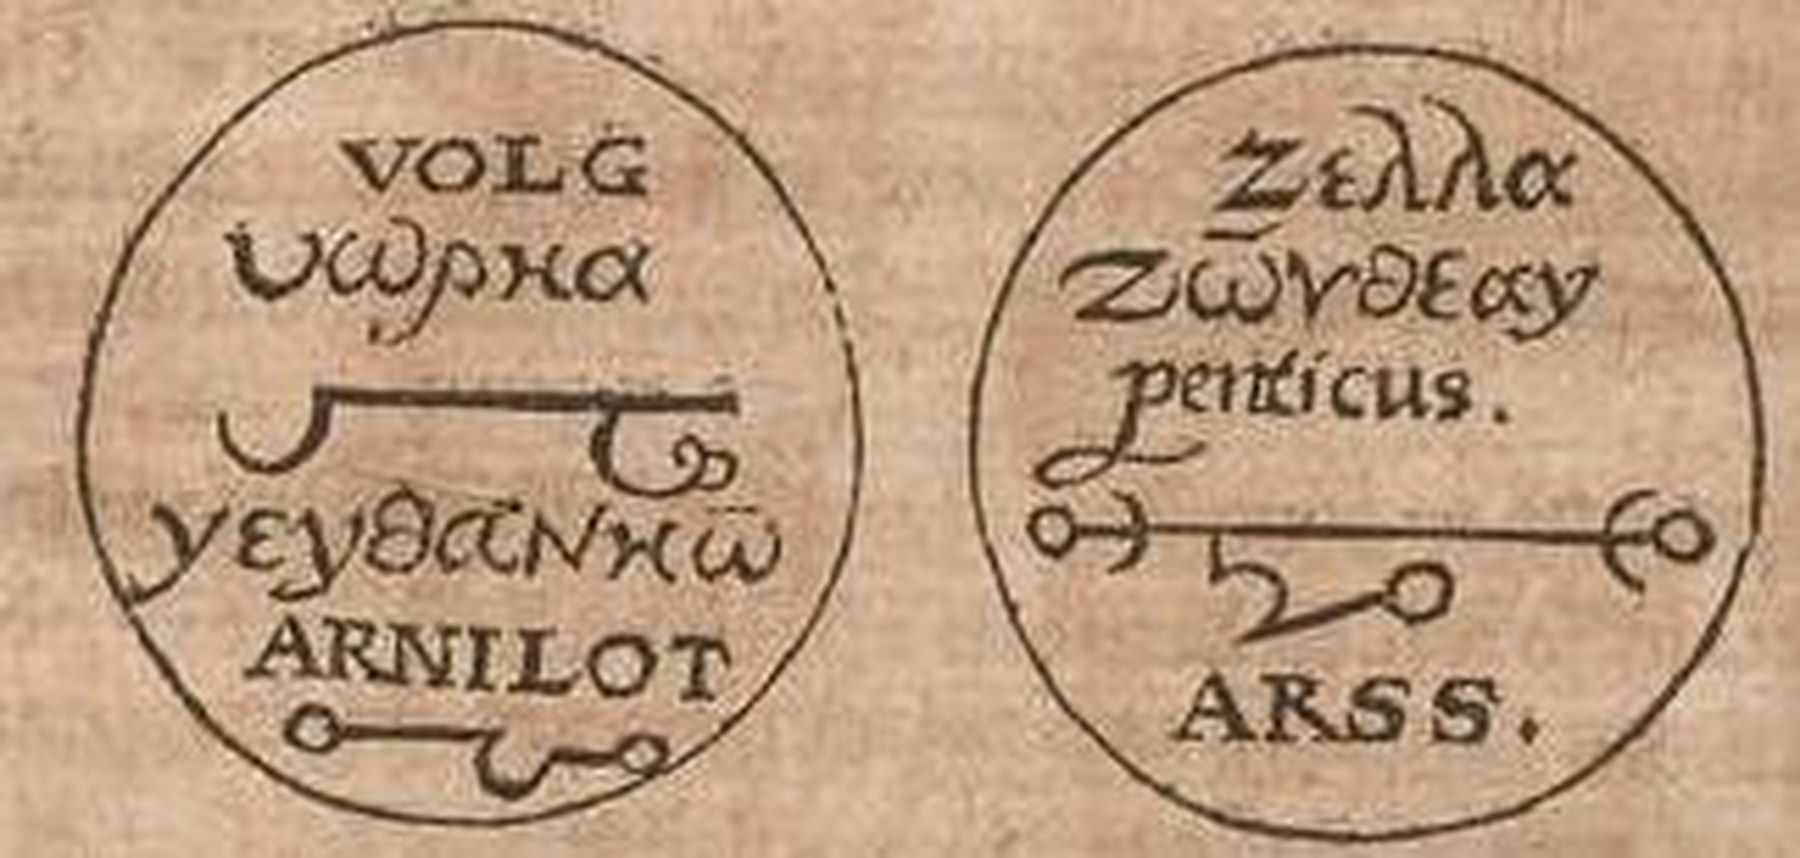 VOLG
υωρκα
γεγθανκω
ARNILOT
Ζελλα
Ζωνθεαγ
penticus.
ARSS.